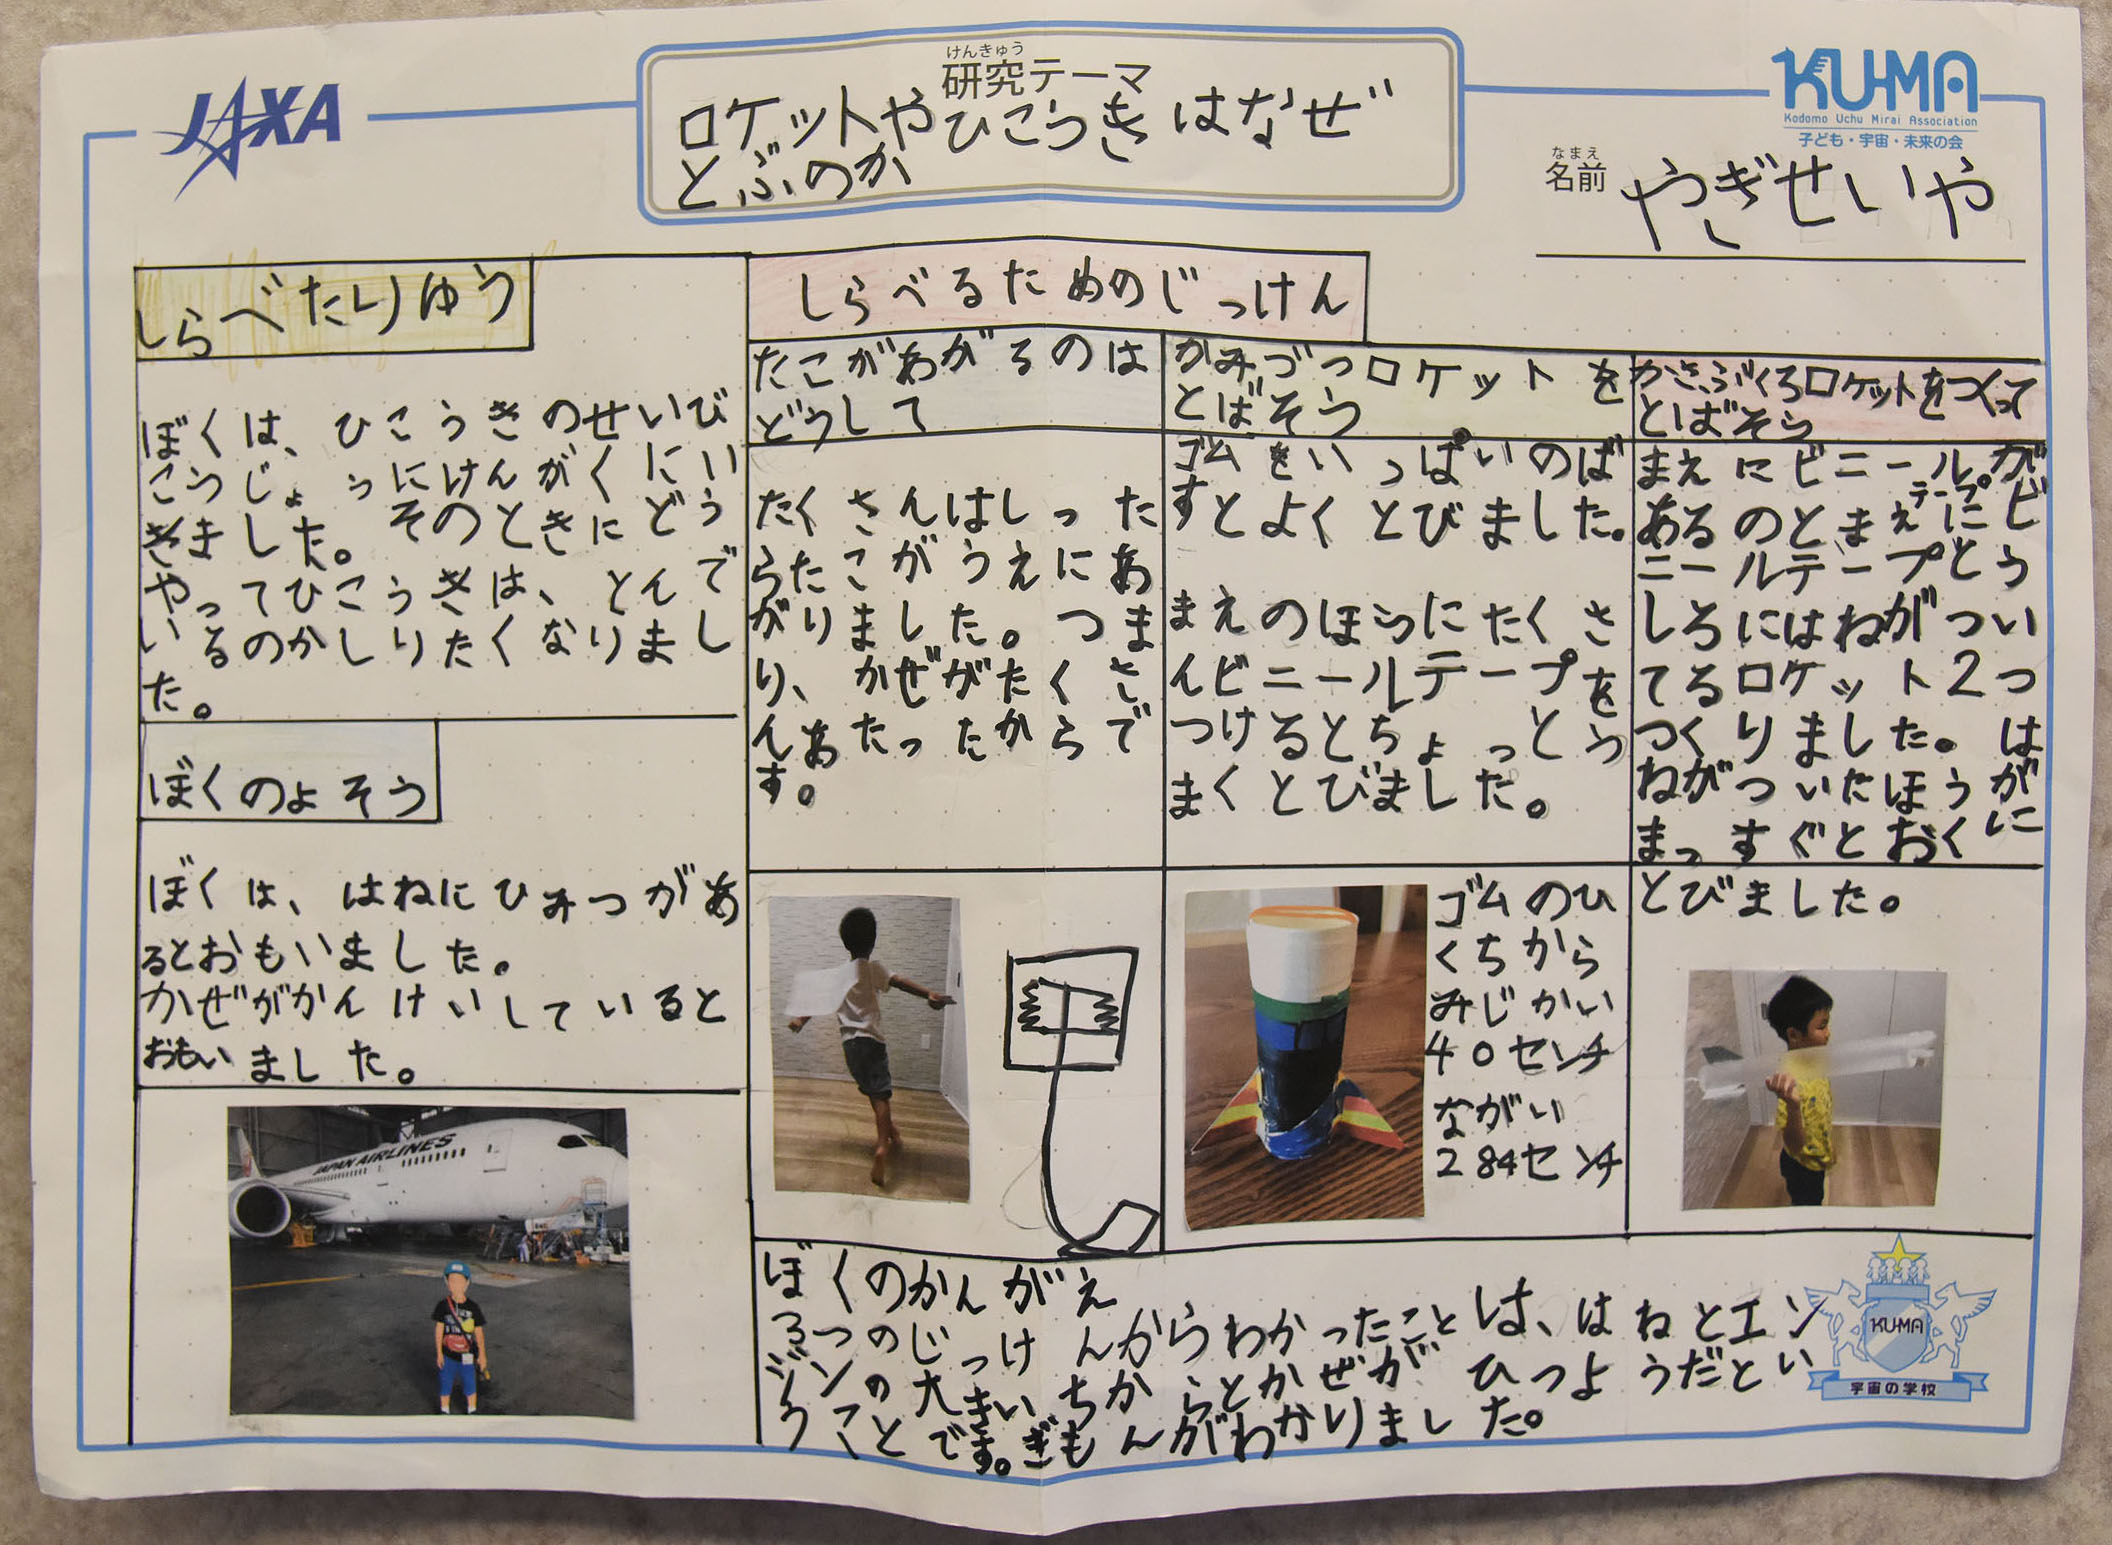 JAXA
けんきゅう
研究テーマ
ロケットやひこうきはなぜ
とぶのか
KU-MA
Kodomo Uchu Mirai Association
子ども・宇宙・未来の会
なまえ
名前
やぎせいや
しらべたりゆう
ぼくは、ひこうきのせいび
こうじょうにけんがくにい
きました。そのときにどう
やってひこうきは、とんで
いるのかしりたくなりまし
た。
ぼくのよそう
ぼくは、はねにひみつがあ
るとおもいました。
かぜがかんけいしていると
おもいました。
JAPAN AIRLINES
しらべるためのじっけん
たこがあがるのは
どうして
たくさんはしった
らたこがうえにあ
がりました。つま
り、かぜがたくさ
んあたったからで
す。
かみづつロケットを
とばそう
ゴムをいっぱいのば
すとよくとびました。
まえのほうにたくさ
んビニールテープを
つけるとちょっとう
まくとびました。
ゴムのひ
くちから
みじかい
40センチ
ながい
284センチ
かさぶくろロケットをつくって
とばそう
まえにビニールが
テープ
あるのとまえにビ
ニールテープとう
しろにはねがつい
てるロケット2つ
つくりました。は
ねがついたほうが
まっすぐとおくに
とびました。
ぼくのかんがえ
3つのじっけんからわかったことは、はねとエン
ジンの大きいちからとかぜがひつようだとい
うことです。ぎもんがわかりました。
KU-MA
宇宙の学校